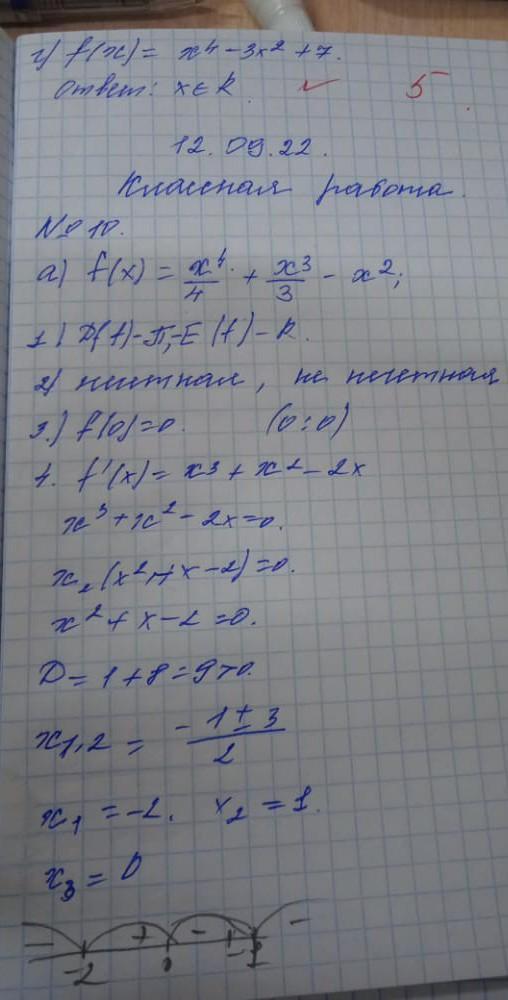 г) f(x) = x⁴ - 3x² + 7.
Ответ: x ∈ R. ✓ 5
12.09.22.
Классная работа.
№ 10.
а) f(x) = x⁴/4 + x³/3 - x²;
1) D(f) - E(f) - R.
2) , не нечетная
3.) f(0)=0. (0;0)
4. f'(x) = x³ + x² - 2x
x³ + x² - 2x = 0.
x (x² + x - 2) = 0.
x² + x - 2 = 0.
D = 1 + 8 = 9 > 0.
x1,2 = (-1 ± 3)/2
x₁ = -2. x₂ = 1.
x₃ = 0
- + - + -
-2 0